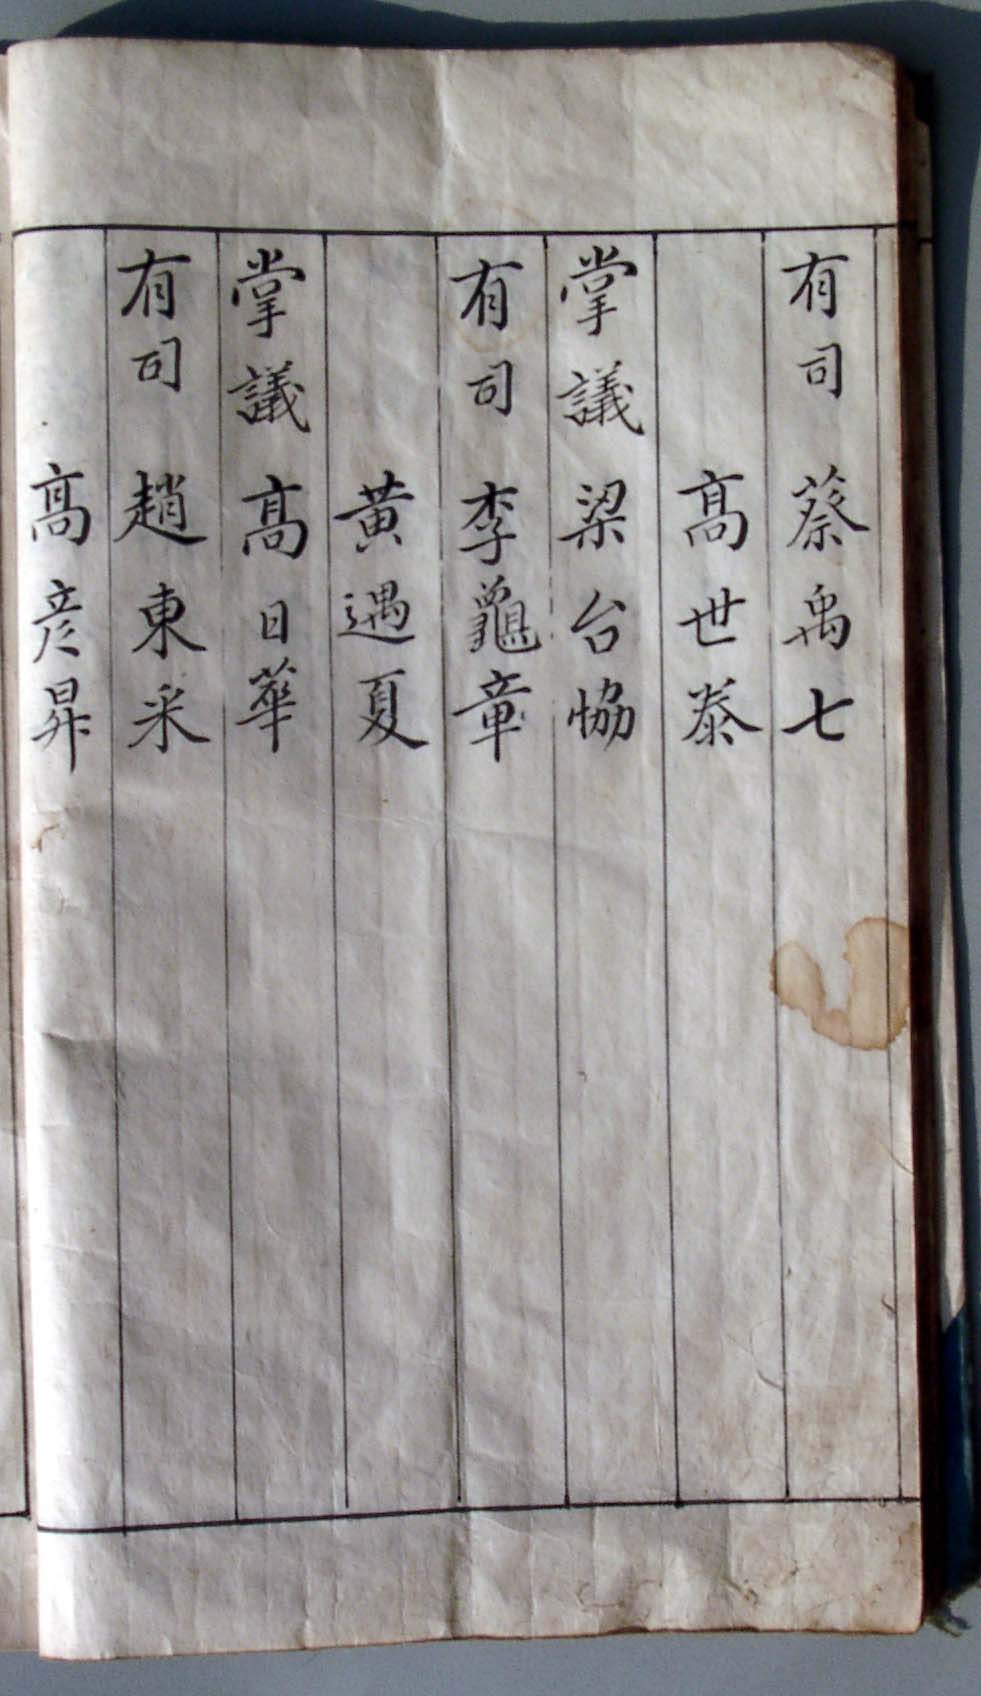 有司 蔡禹七
髙世泰
掌議 梁台恊
有司 李龜章
黄遇夏
掌議 髙日華
有司 趙東采
髙彦昇